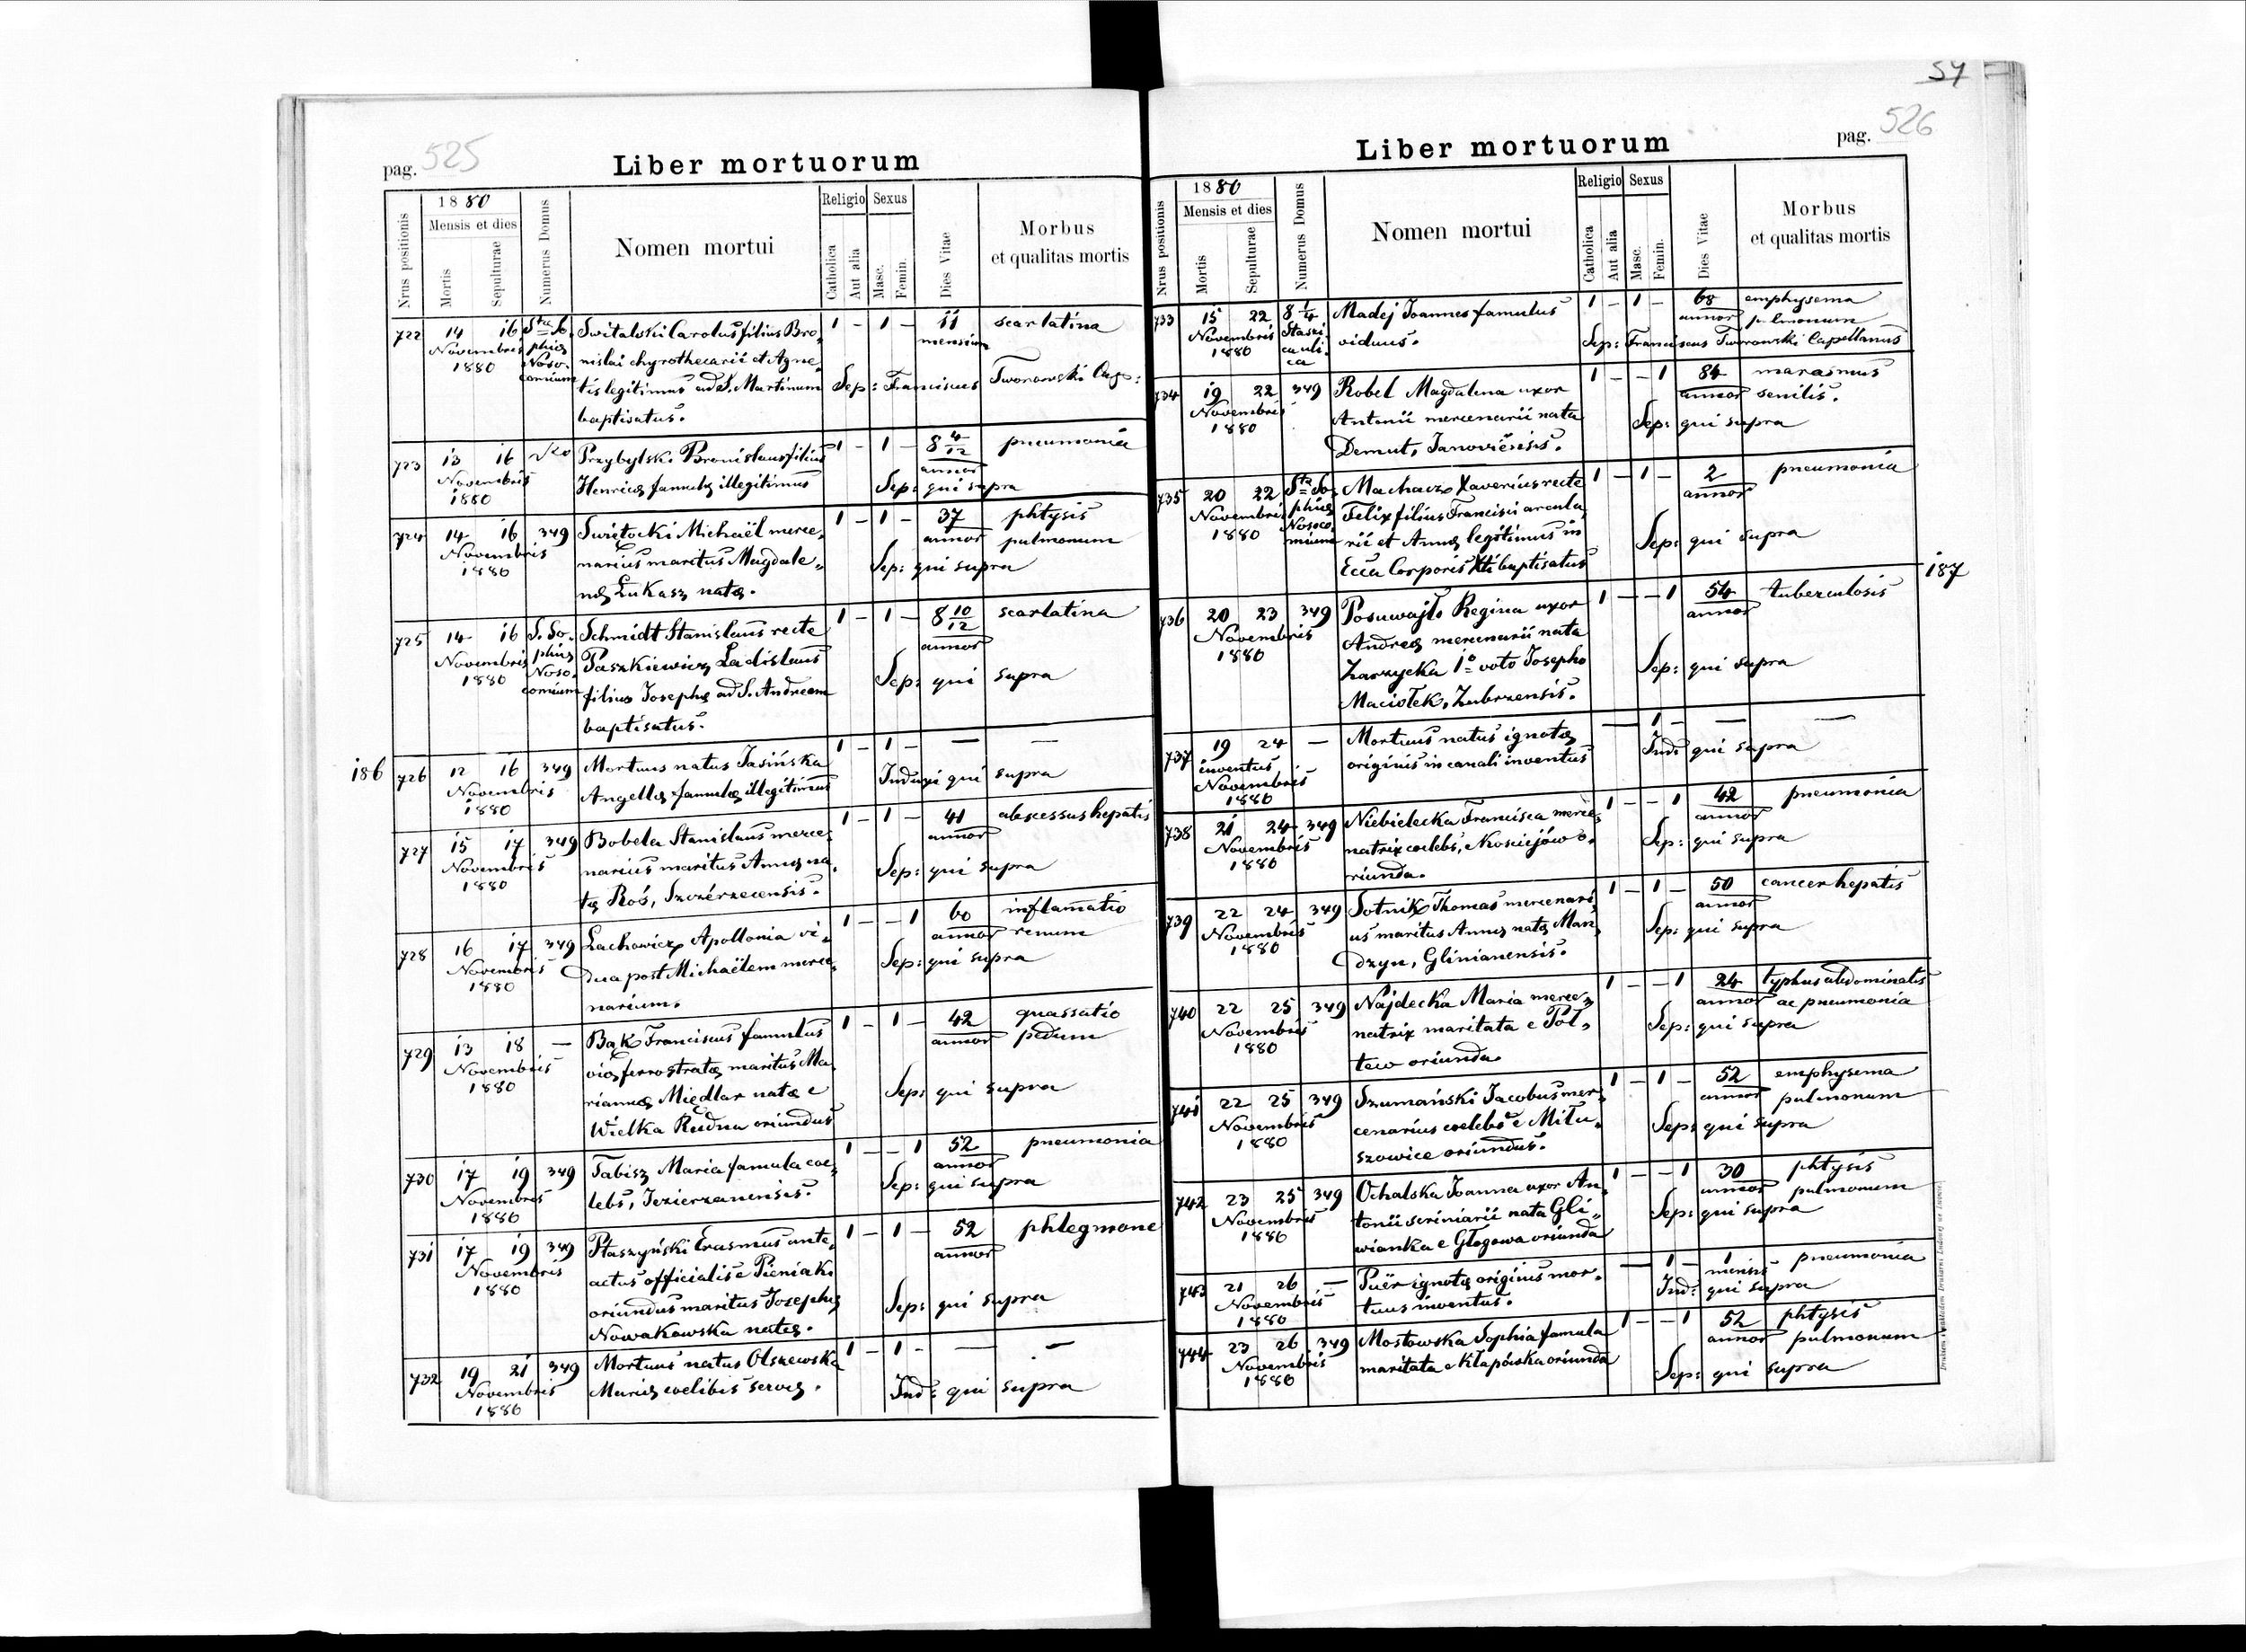 pag. 525
Liber mortuorum
Nrus positionis
1880
Mensis et dies
Mortis
Sepulturae
Numerus Domus
Nomen mortui
Religio
Catholica
Aut alia
Sexus
Masc.
Femin.
Dies Vitae
Morbus
et qualitas mortis
722 14 16 Novembris 1880 Sta So-
phia
Noso-
comium
Switalski Carolus filius Bro-
nislai chyrothecarii et Agne-
tis legitimus ad S. Martinum
baptisatus.
1 – 1 – 11 mensium scarlatina
Sep: Franciscus Tworowski Cap:
723 13 16 Novembris 1880
Przybylski Bronislaus filius
Henricae famulae illegitimus
1 – 1 – 8 4/12 annor pneumonia
Sep: qui supra
724 14 16 349 Novembris 1880
Swiętocki Michaël merce-
narius maritus Magdale-
nae Łukasz natae.
1 – 1 – 37 annor phtysis
pulmonum
Sep: qui supra
725 14 16 Novembris 1880 S. So-
phia
Noso-
comium
Schmidt Stanislaus recte
Paszkiewicz Ladislaus
filius Josephae ad S. Andream
baptisatus.
1 – 1 – 8 10/12 annor scarlatina
Sep: qui supra
186
726 12 16 349 Novembris 1880
Mortuus natus Jasińska
Angellae famulae illegitimus
1 – 1 – — —
Induxi qui supra
727 15 17 349 Novembris 1880
Bobela Stanislaus merce-
narius maritus Annae na-
tae Roś, Szczérzecensis.
1 – 1 – 41 annor abscessus hepatis
Sep: qui supra
728 16 17 349 Novembris 1880
Lachowicz Apollonia vi-
dua post Michaëlem merce-
narium.
1 – – 1 60 annor inflamatio
renum
Sep: qui supra
729 13 18 — Novembris 1880
Bąk Franciscus famulus
viae ferrostratae maritus Ma-
riannae Międlar natae e
Wielka Rudna oriundus
1 – 1 – 42 annor quassatio
pedum
Sep: qui supra
730 17 19 349 Novembris 1880
Tabisz Maria famula coe-
lebs, Jezierzanensis.
1 – – 1 52 annor pneumonia
Sep: qui supra
731 17 19 349 Novembris 1880
Ptaszyński Erasmus ante-
actus officialis e Pieniaki
oriundus maritus Josephae
Nowakowska natae.
1 – 1 – 52 annor phlegmone
Sep: qui supra
732 19 21 349 Novembris 1880
Mortuus natus Olszewska
Mariae coelibis servae.
1 – 1 – — —
Ind: qui supra
57
pag. 526
Liber mortuorum
Nrus positionis
1880
Mensis et dies
Mortis
Sepulturae
Numerus Domus
Nomen mortui
Religio
Catholica
Aut alia
Sexus
Masc.
Femin.
Dies Vitae
Morbus
et qualitas mortis
733 15 22 Novembris 1880 8 1/4
Madej Joannes famulus
viduus.
1 – 1 – 68 annor emphysema
pulmonum
Sep: Franciscus Tworowski Capellanus
734 19 22 349 Novembris 1880
Robel Magdalena uxor
Antonii mercenarii nata
Demut, Janoviensis.
1 – – 1 84 annor marasmus
senilis.
Sep: qui supra
735 20 22 Novembris 1880 Sta So-
phia
Nosoco-
mium
Machacz Xaverius recte
Felix filius Francisci arcula-
rii et Annae legitimus in
Ecca Corporis Xti baptisatus
1 – 1 – 2 annor pneumonia
Sep: qui supra
187
736 20 23 349 Novembris 1880
Posuwajło Regina uxor
Andreae mercenarii nata
Zarzycka 1o voto Josepho
Maciołek, Zubrzensis.
1 – – 1 54 annor tuberculosis
Sep: qui supra
737 19 24 — inventus
Novembris 1880
Mortuus natus ignotae
originis in canali inventus
— 1 – — —
Ind: qui supra
738 21 24 349 Novembris 1880
Niebielecka Francisca merce-
natrix coelebs, e Kosciejów o-
riunda.
1 – – 1 42 annor pneumonia
Sep: qui supra
739 22 24 349 Novembris 1880
Sotnik Thomas mercenari-
us maritus Annae natae Man-
dzyn, Glinianensis.
1 – 1 – 50 annor cancer hepatis
Sep: qui supra
740 22 25 349 Novembris 1880
Najdecka Maria merce-
natrix maritata e Poł-
tew oriunda
1 – – 1 24 annor typhus abdominalis
ac pneumonia
Sep: qui supra
741 22 25 349 Novembris 1880
Szumański Jacobus mer-
cenarius coelebs e Mitu-
szowice oriundus.
1 – 1 – 52 annor emphysema
pulmonum
Sep: qui supra
742 23 25 349 Novembris 1880
Ochalska Joanna uxor An-
tonii scriniarii nata Gli-
wianka e Głogowa oriunda
1 – – 1 30 annor phtysis
pulmonum
Sep: qui supra
743 21 26 — Novembris 1880
Puër ignotae originis mor-
tuus inventus.
— 1 – 1 mensis pneumonia
Ind: qui supra
744 23 26 349 Novembris 1880
Mostowska Sophia famula
maritata e Kłapówka oriunda
1 – – 1 52 annor phtysis
pulmonum
Sep: qui supra